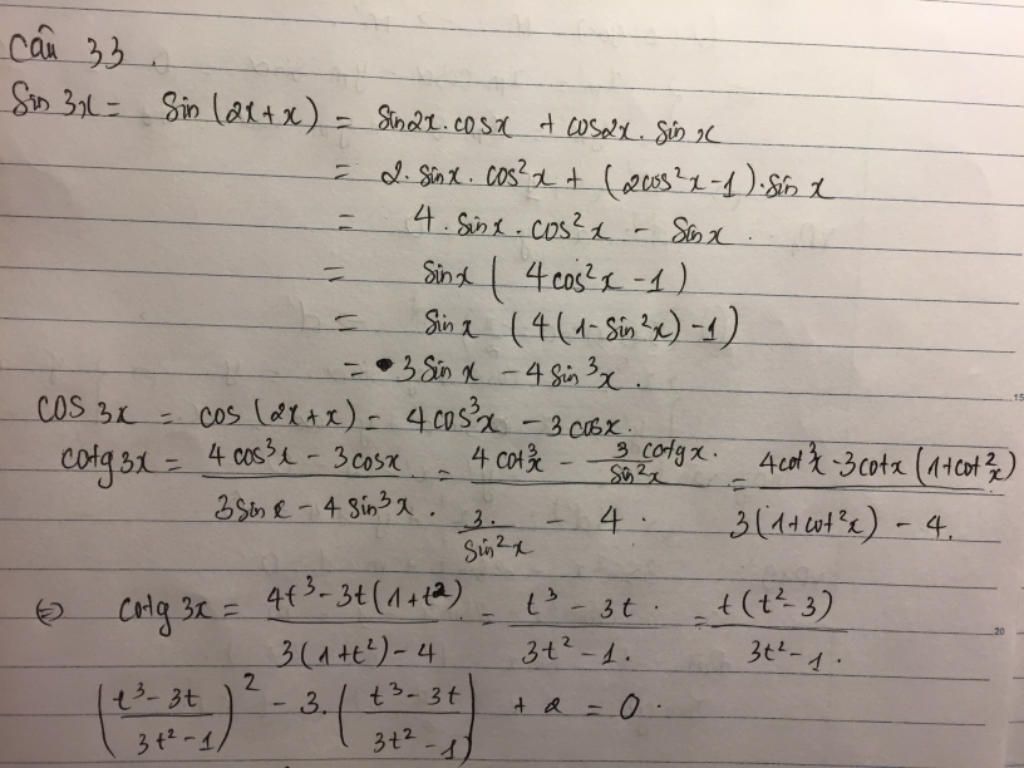 Câu 33.
Sin 3x = Sin (2x+x) = Sin2x.cosx + cos2x.sin x
= 2.sinx.cos²x + (2cos²x-1).sin x
= 4.sinx.cos²x - Sinx.
= Sinx ( 4cos²x -1)
= Sin x (4(1-Sin²x) -1)
= 3Sin x - 4Sin³x.
COS 3x = cos (2x+x) = 4cos³x - 3cosx.
cotg3x = (4cos³x - 3cosx)/(3Sinx - 4Sin³x) = (4cot³x - 3cotgx/Sin²x)/(3/Sin²x - 4) = (4cot³x - 3cotx(1+cot²x))/(3(1+cot²x) - 4).
⇔ cotg 3x = (4t³-3t(1+t²))/(3(1+t²)-4) = (t³-3t)/(3t²-1) = (t(t²-3))/(3t²-1).
((t³-3t)/(3t²-1))² - 3.((t³-3t)/(3t²-1)) + 2 = 0.
15
20